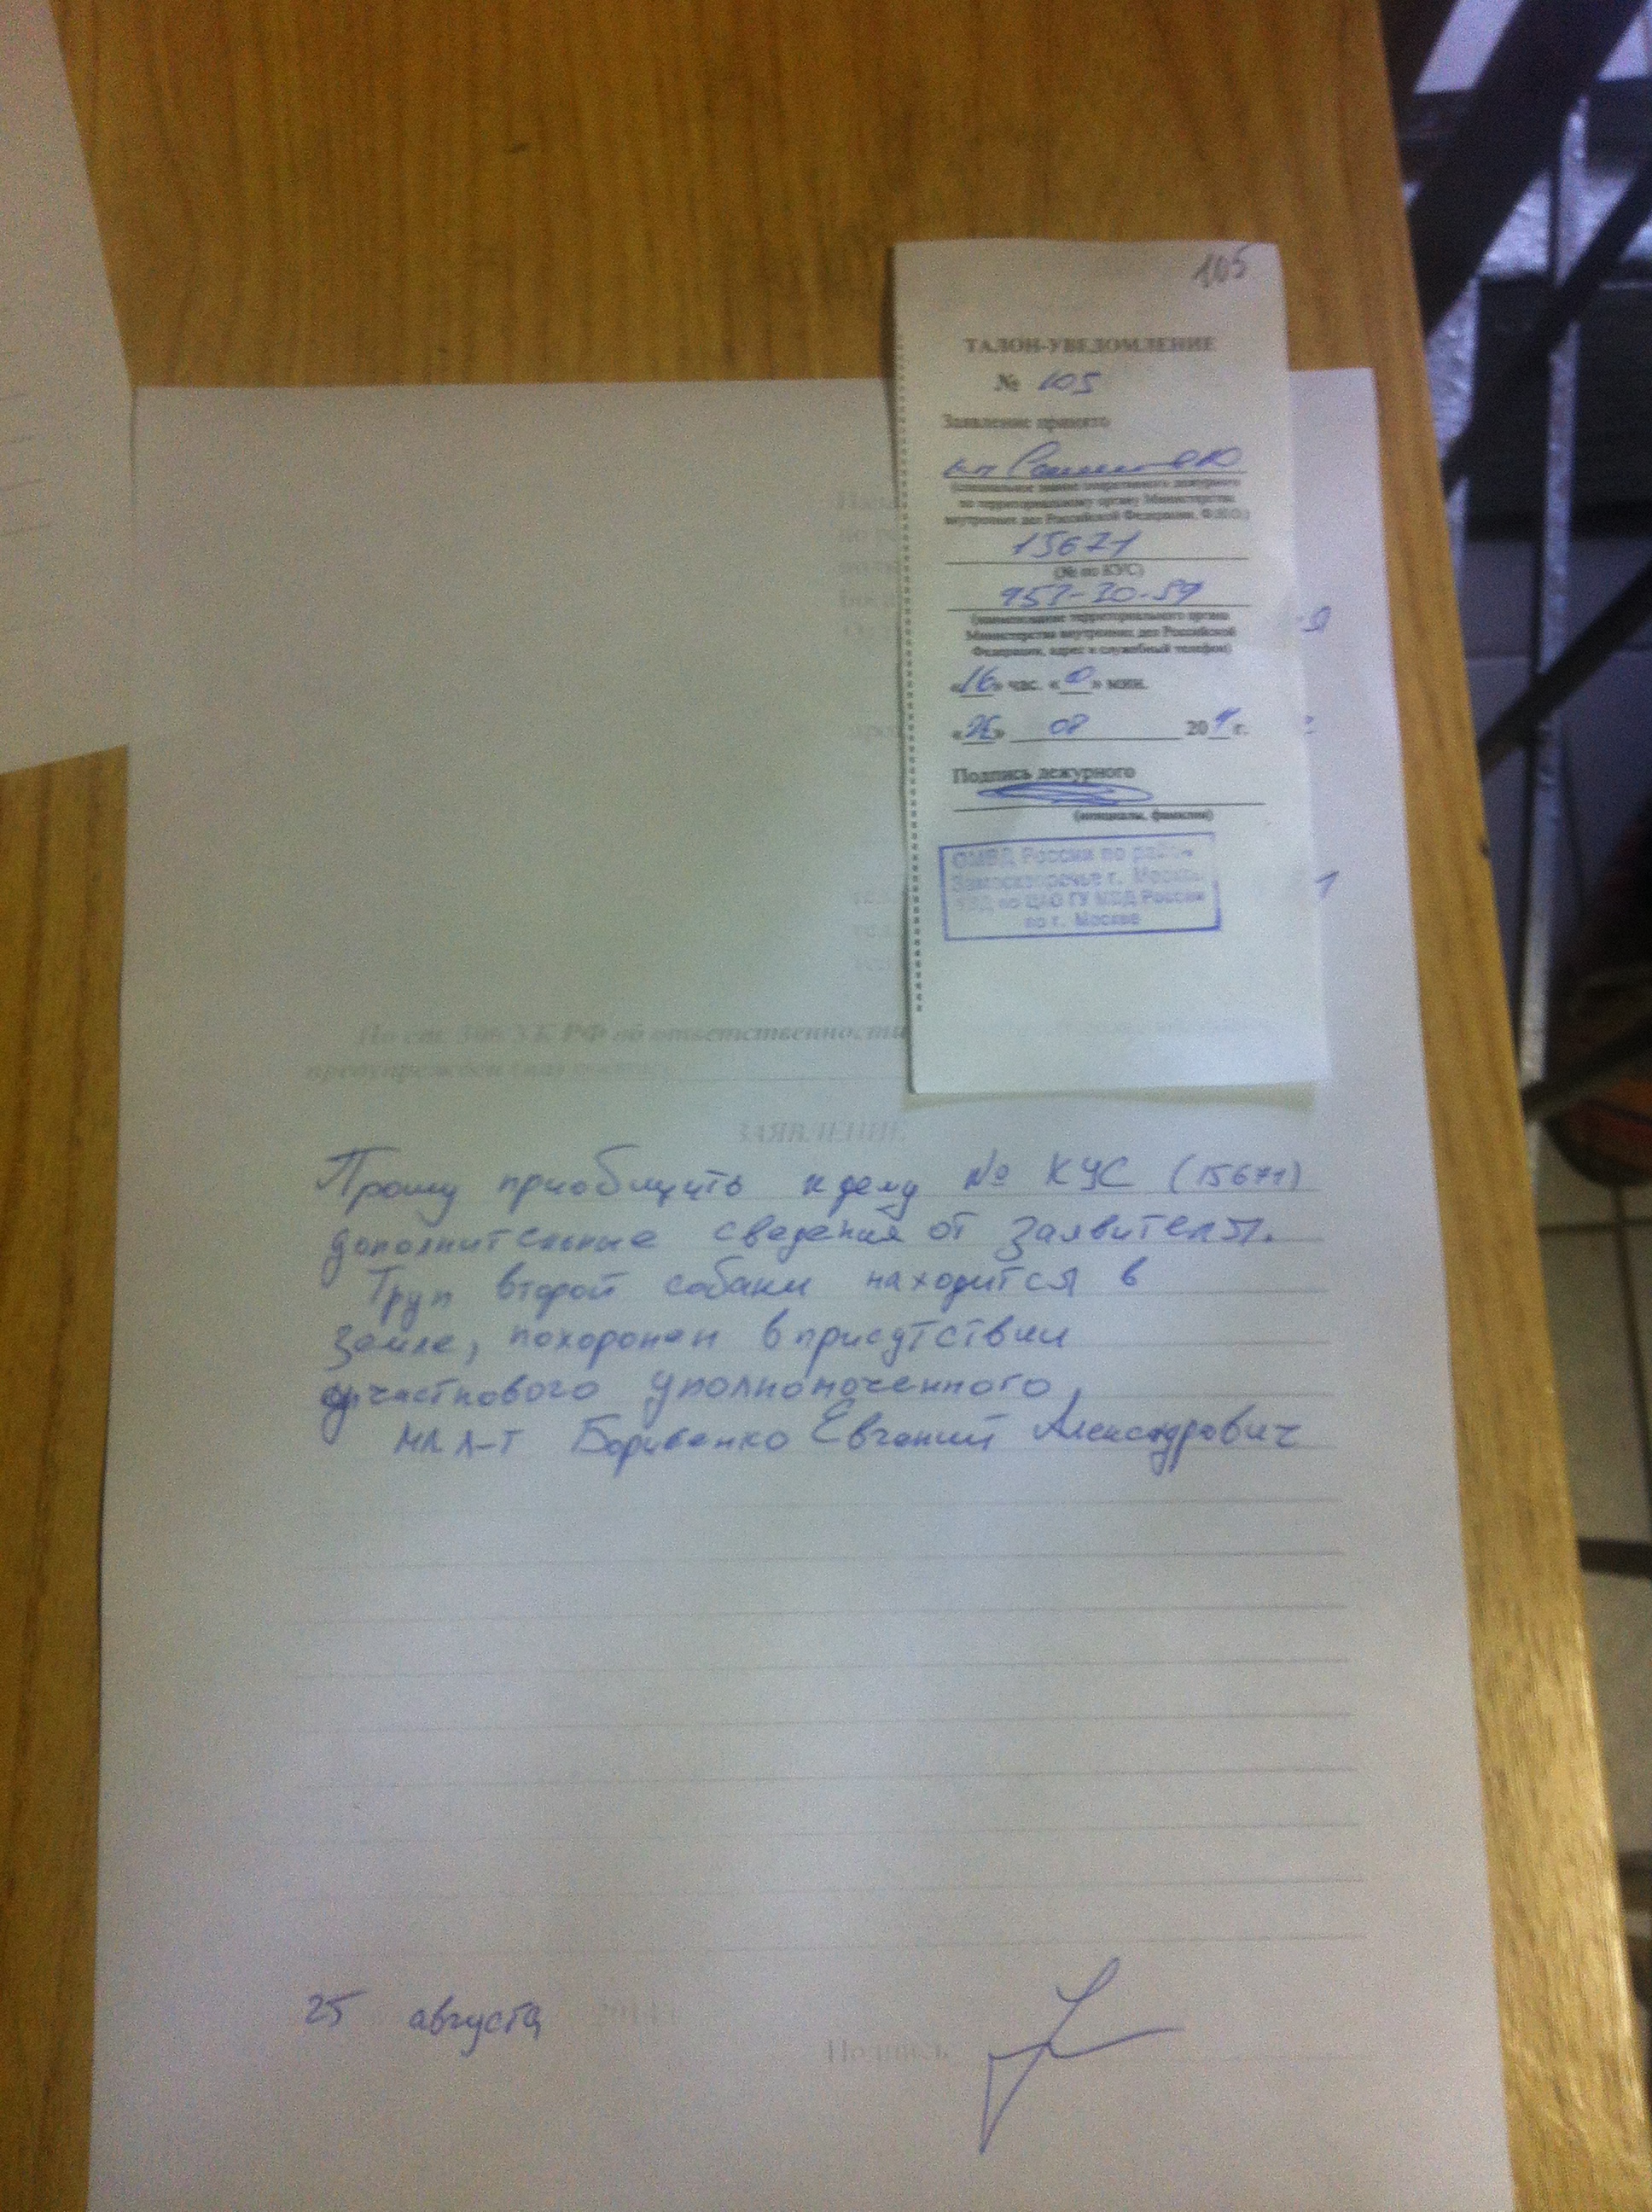 105
ТАЛОН-УВЕДОМЛЕНИЕ
№ 105
Заявление принято
(специальное звание оперативного дежурного
по территориальному органу Министерства
внутренних дел Российской Федерации, Ф.И.О.)
15671
(№ по КУС)
953-30-59
(наименование территориального органа
Министерства внутренних дел Российской
Федерации, адрес и служебный телефон)
«16» час. «0» мин.
08 20 г.
Подпись дежурного
(инициалы, фамилия)
ОМВД России по району
Замоскворечье г. Москвы
УВД по ЦАО ГУ МВД России
по г. Москве
По ст. 306 УК РФ об ответственности
ЗАЯВЛЕНИЕ
Прошу приобщить к делу № КУС (15671)
дополнительные сведения от заявителя.
Труп второй собаки находится в
земле, похоронен в присутствии
участкового уполномоченного,
мл л-т Евгений Александрович
25 августа 2014
Подпись